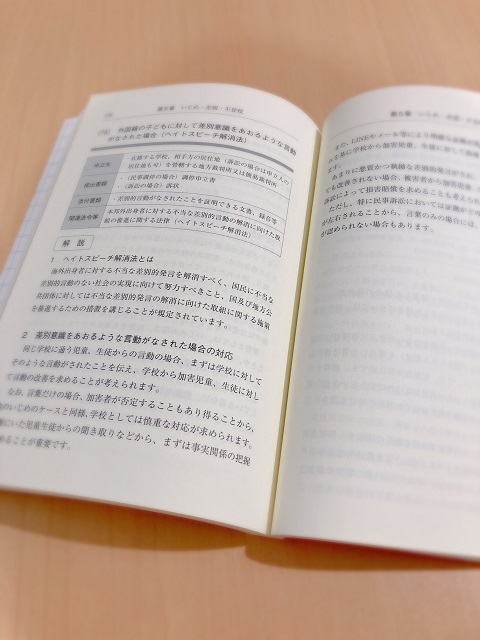 第5章 いじめ・差別・不登校
外国籍の子どもに対して差別意識をあおるような言動
がなされた場合（ヘイトスピーチ解消法）
申立先
・在籍する学校、相手方の居住地（訴訟の場合は申立人の
居住地も可）を管轄する地方裁判所又は簡易裁判所
提出書類
・（民事調停の場合）調停申立書
・（訴訟の場合）訴状
添付書類
・差別的言動がなされたことを証明できる文書、録音等
関連法令等
本邦外出身者に対する不当な差別的言動の解消に向けた取
組の推進に関する法律（ヘイトスピーチ解消法）
解説
1 ヘイトスピーチ解消法とは
海外出身者に対する不当な差別的発言を解消すべく、国民に不当な
差別的言動のない社会の実現に向けて努力すべきこと、国及び地方公
共団体に対しては不当な差別的発言の解消に向けた取組に関する施策
を推進するための措置を講じることが規定されています。
2 差別意識をあおるような言動がなされた場合の対応
同じ学校に通う児童、生徒からの言動の場合、まずは学校に対して
そのような言動がされたことを伝え、学校から加害児童、生徒に対し
て言動の改善を求めることが考えられます。
なお、言葉だけの場合、加害者が否定することもあり得ることから、
のいじめのケースと同様、学校としては慎重な対応が求められます。
にいた児童生徒からの聞き取りなどから、まずは事実関係の把握
ることが重要です。
また、LINEやメール等により
る基に学校から加害児童、生徒に対して
ます。
あまりに悪質かつ執拗な差別的発言が
ても改善されない場合、被害者から加害児童、
訴訟によって損害賠償を求めることも考え
ただし、特に民事訴訟においては証拠が
が左右されることから、言葉のみの場合には、
が認められない場合もあります。